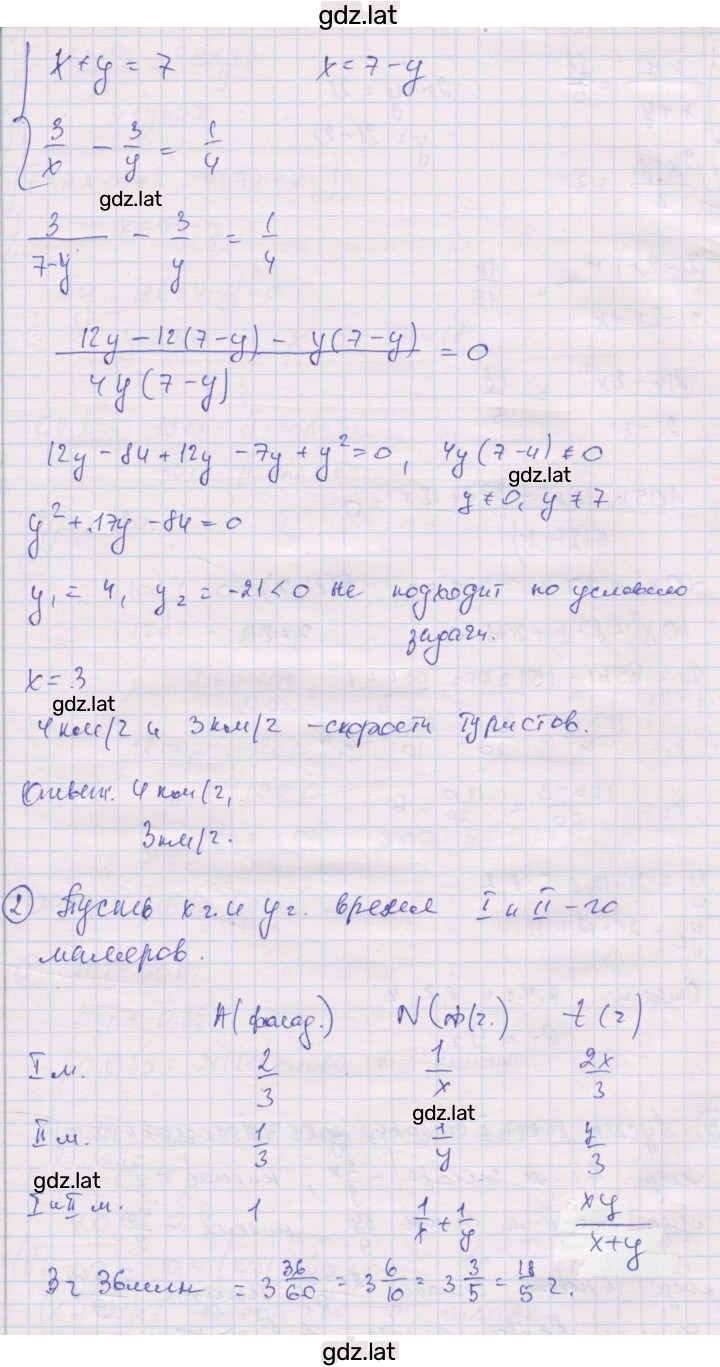 gdz.lat
x + y = 7    x = 7 - y
3/x - 3/y = 1/4
gdz.lat
3/(7-y) - 3/y = 1/4
(12y - 12(7-y) - y(7-y)) / (4y(7-y)) = 0
12y - 84 + 12y - 7y + y² = 0, 4y(7-y) ≠ 0
gdz.lat
y ≠ 0, y ≠ 7
y² + 17y - 84 = 0
y₁ = 4, y₂ = -21 < 0 не подходит по условию
задачи.
x = 3
gdz.lat
4 км/г и 3 км/г - скорости туристов.
Ответ. 4 км/г,
3 км/г.
② Пусть x г. и y г. время I и II-го
маляров.
A (фасад.)    N (ф/г.)    t (г)
I м.    2/3    1/x    2x/3
gdz.lat
II м.    1/3    1/y    y/3
gdz.lat
I и II м.    1    1/x + 1/y    xy/(x+y)
3 г 36 мин = 3 36/60 = 3 6/10 = 3 3/5 = 18/5 г.
gdz.lat